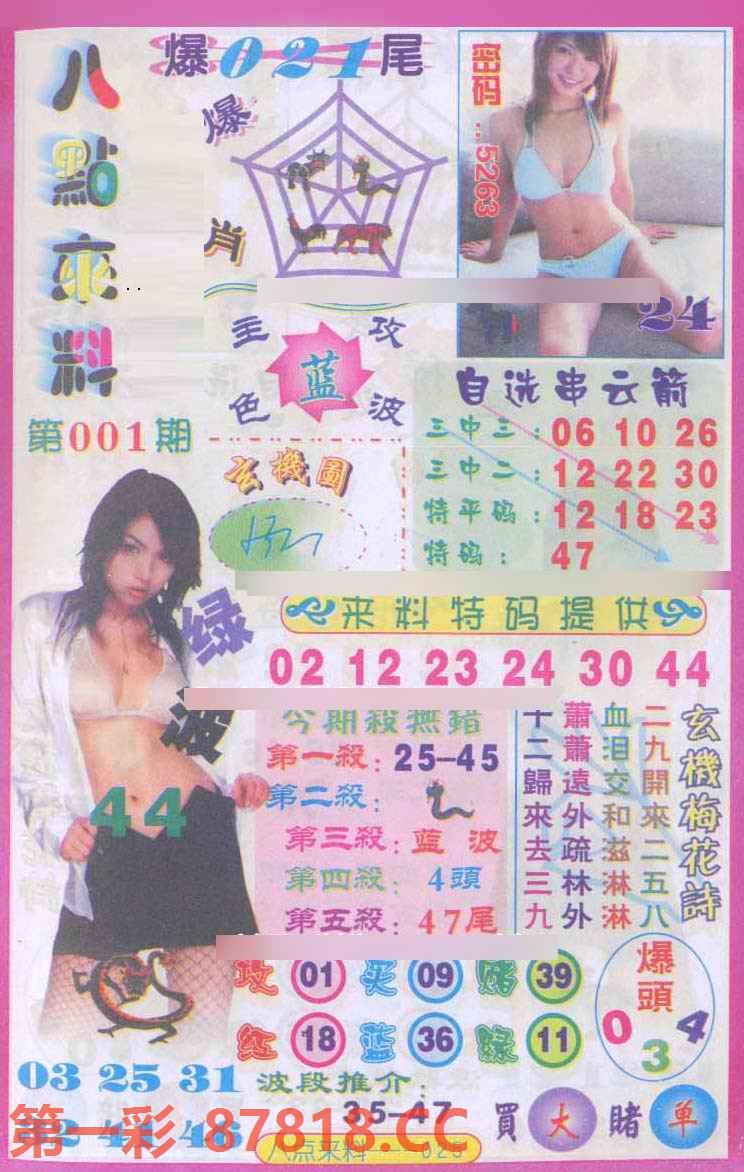 八點來料
爆021尾
爆肖
密码:5263
24
主攻
蓝
色波
第001期
玄機圖
自选串云箭
三中三:06 10 26
三中二:12 22 30
特平码:12 18 23
特码:47
来料特码提供
02 12 23 24 30 44
绿波
44
今期殺無錯
第一殺:25-45
第二殺:
第三殺:蓝波
第四殺:4頭
第五殺:47尾
玄機梅花詩
二九開來二五八
血泪交和滋淋淋
蕭蕭遠外疏林外
十二歸來去三九
攻 01 买 09 赌 39
红 18 蓝 36 绿 11
爆頭
0 3 4
03 25 31
波段推介:
35-47
買大賭单
第一彩 87818.CC
八点来料——025